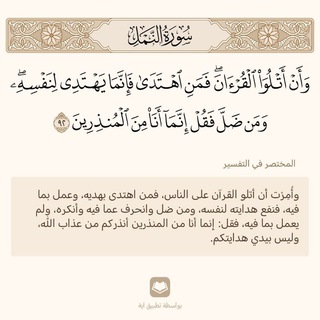 سُورَةُ النَّمْلِ
وَأَنْ أَتْلُوَاْ ٱلْقُرْءَانَۖ فَمَنِ ٱهْتَدَىٰ فَإِنَّمَا يَهْتَدِى لِنَفْسِهِۦۖ
وَمَن ضَلَّ فَقُلْ إِنَّمَآ أَنَا۠ مِنَ ٱلْمُنذِرِينَ ٩٢
المختصر في التفسير
وأُمِرْت أن أتلو القرآن على الناس، فمن اهتدى بهديه، وعمل بما
فيه، فنفع هدايته لنفسه، ومن ضل وانحرف عما فيه وأنكره، ولم
يعمل بما فيه، فقل: إنما أنا من المنذرين أنذركم من عذاب الله،
وليس بيدي هدايتكم.
بواسطة تطبيق آية